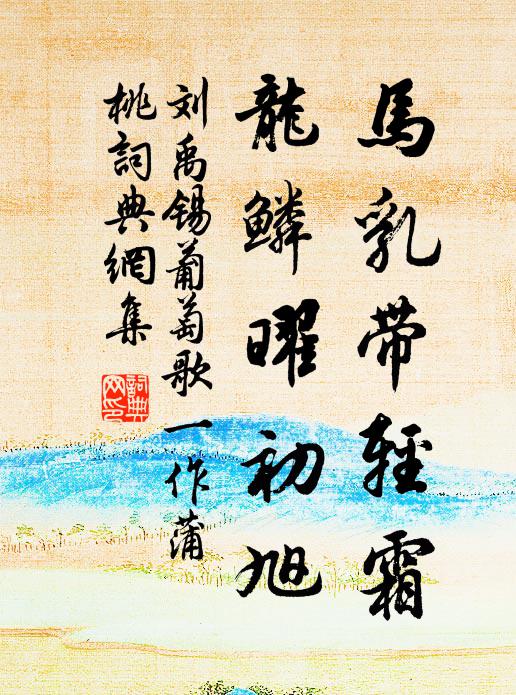 馬乳带輕霜
龍鱗曜初旭
刘禹锡葡萄歌一作蒲
桃詞典網集
詞典
网印